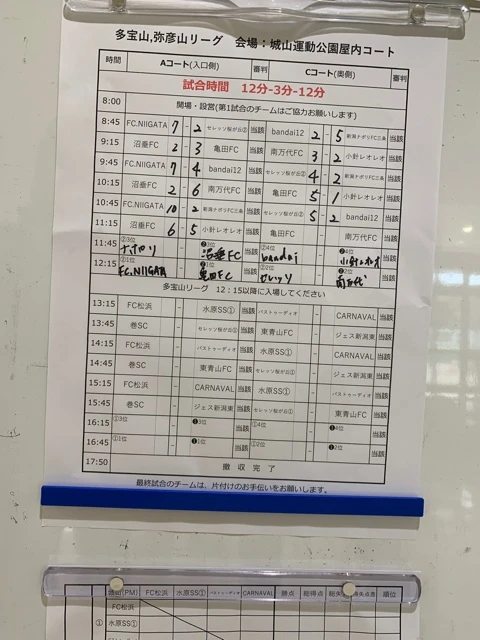 多宝山,弥彦山リーグ　会場：城山運動公園屋内コート
時間 Aコート(入口側) 審判 Cコート(奥側) 審判
試合時間　12分-3分-12分
8:00 開場・設営(第1試合のチームはご協力お願いします)
8:45 FC.NIIGATA 7 - 2 セレッソ桜が丘② 当該 bandai12 2 - 5 新潟ナポリFC三条 当該
9:15 沼垂FC 2 - 3 亀田FC 当該 南万代FC 3 - 2 小針レオレオ 当該
9:45 FC.NIIGATA 7 - 4 bandai12 当該 セレッソ桜が丘② 4 - 2 新潟ナポリFC三条 当該
10:15 沼垂FC 2 - 6 南万代FC 当該 亀田FC 5 - 1 小針レオレオ 当該
10:45 FC.NIIGATA 10 - 2 新潟ナポリFC三条 当該 セレッソ桜が丘② 5 - 2 bandai12 当該
11:15 沼垂FC 6 - 5 小針レオレオ 当該 亀田FC - 南万代FC 当該
11:45 ②3位 ナポリ - ❷3位 沼垂FC 当該 ②4位 bandai - ❷4位 小針レオレオ 当該
12:15 ②1位 FC.NIIGATA - ❷1位 亀田FC 当該 ②2位 セレッソ - ❷2位 南万代 当該
多宝山リーグ　12：15以降に入場してください
13:15 FC松浜 - 水原SS① 当該 パストゥーディオ - CARNAVAL 当該
13:45 巻SC - セレッソ桜が丘① 当該 東青山FC - ジェス新潟東 当該
14:15 FC松浜 - パストゥーディオ 当該 水原SS① - CARNAVAL 当該
14:45 巻SC - 東青山FC 当該 セレッソ桜が丘① - ジェス新潟東 当該
15:15 FC松浜 - CARNAVAL 当該 水原SS① - パストゥーディオ 当該
15:45 巻SC - ジェス新潟東 当該 セレッソ桜が丘① - 東青山FC 当該
16:15 ①3位 - ❶3位 当該 ①4位 - ❶4位 当該
16:45 ①1位 - ❶1位 当該 ①2位 - ❶2位 当該
17:50 撤収完了
最終試合のチームは、片付けのお手伝いをお願いします。
(PM) FC松浜 水原SS① パストゥーディオ CARNAVAL 勝点 総得点 順位
FC松浜
① 水原SS①